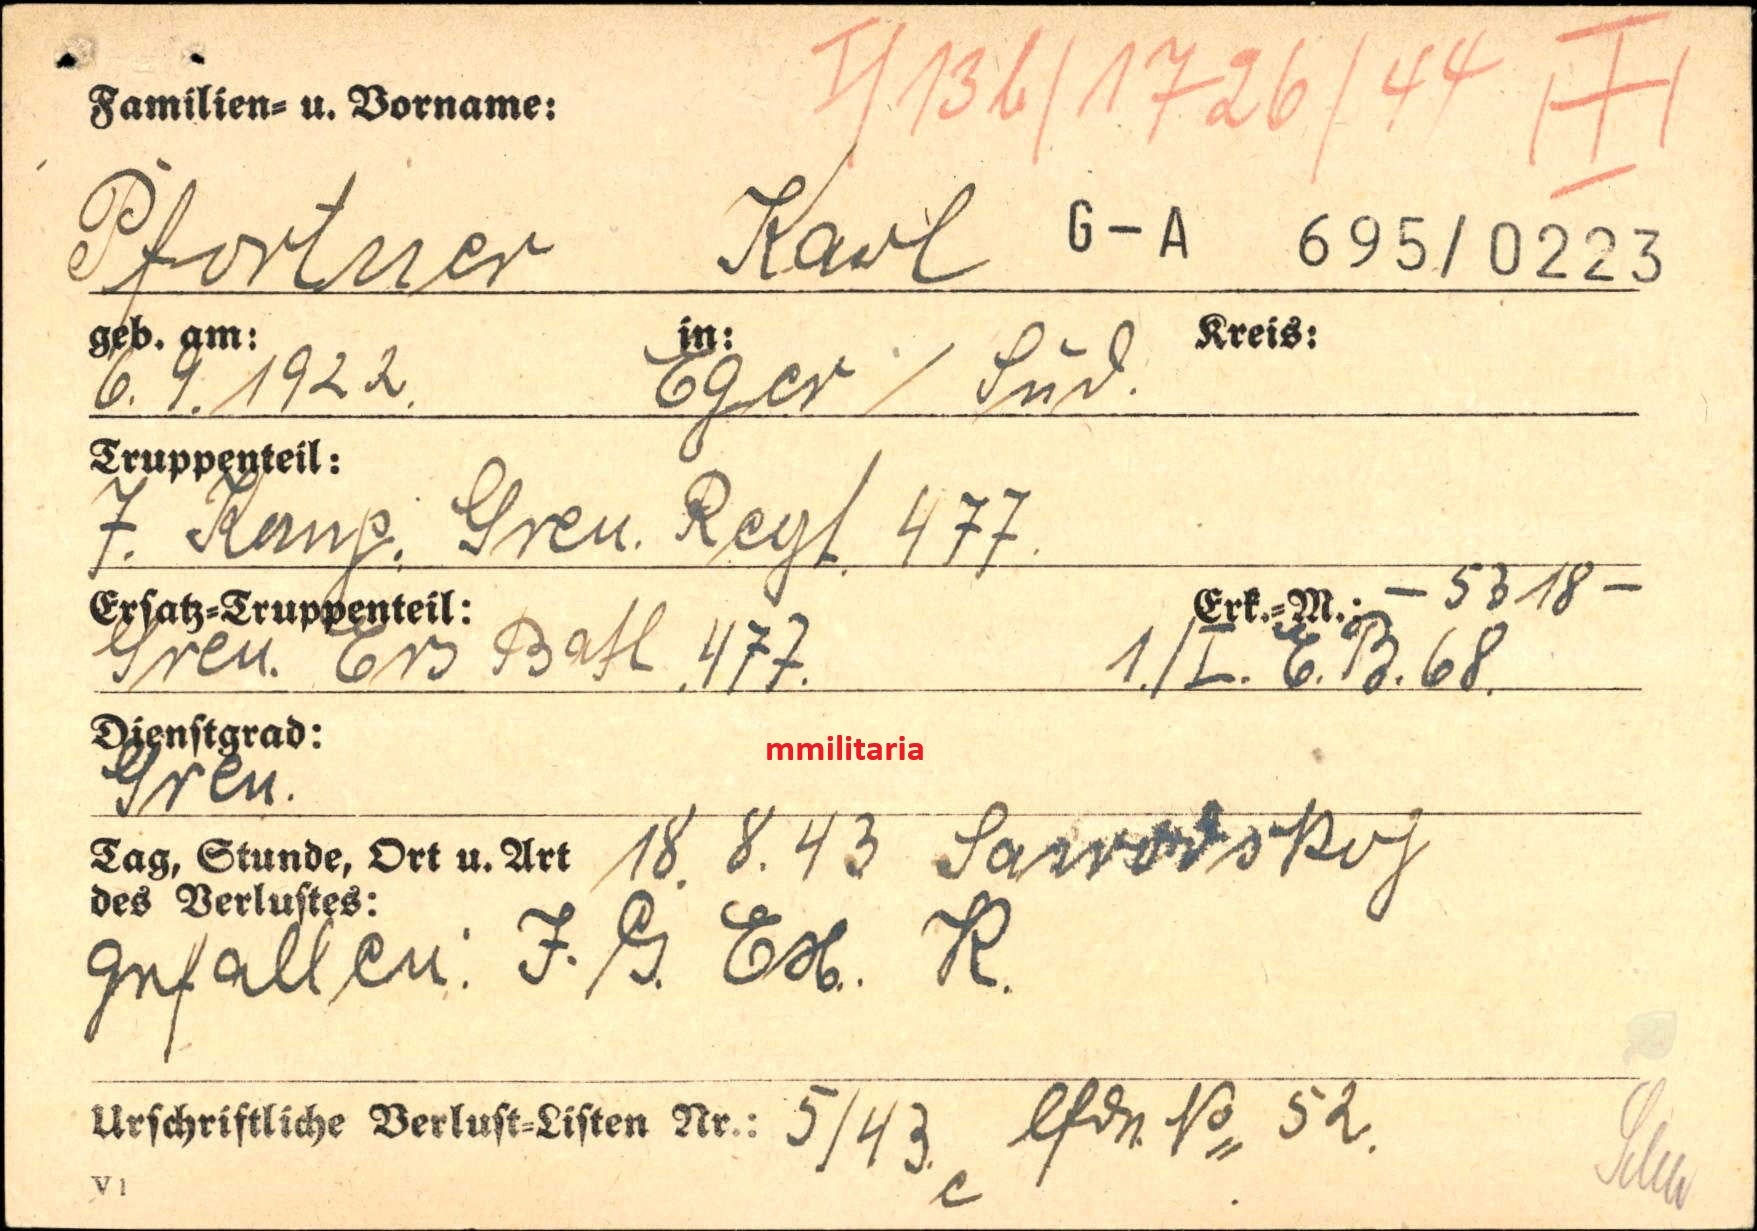 I/13b/1726/44 I
Familien- u. Vorname:
Pfortner Karl G-A 695/0223
geb. am: in: Kreis:
6. 9. 1922. Eger / Süd.
Truppenteil:
7. Komp. Gren. Regt. 477.
Ersatz-Truppenteil: Erk.-M.: - 5318 -
Gren. Ers Batl. 477. 1./I. E. B. 68.
Dienstgrad:
mmilitaria
Gren.
Tag, Stunde, Ort u. Art 18. 8. 43
des Verlustes:
gefallen: I. G. Ex. K.
Urschriftliche Verlust-Listen Nr.: 5/43. lfdn. No 52.
c
V 1